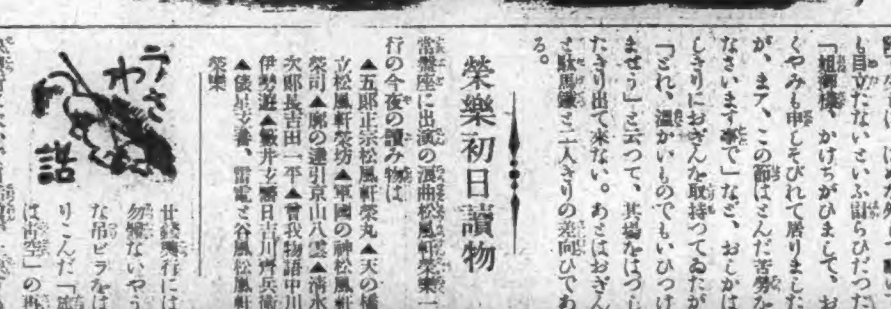 も目立たないといふ計らひだつた
「姐御様、かけちがひまして、お
くやみも申しそびれて居りました
が、まア、この節はとんだ苦労を
なさいます事で」など、おしかは
しきりにおぎんを取持つてゐたが
「どれ、温かいものでもいひつけ
ませう」と云つて、其場をはづし
たきり出て来ない。あとはおぎん
と駄馬鎌と二人きりの差向ひであ
る。
榮樂初日讀物
常盤座に出演の浪曲松風軒榮樂一
行の今夜の讀み物は
▲五郎正宗松風軒榮丸▲天の橋
立松風軒榮坊▲軍國の神松風軒
榮司▲廓の達引京山八雲▲清水
次郎長吉田一平▲曾我物語中川
伊勢遊▲玄蕃日吉川齊兵衛
▲俵星玄蕃、雷電と谷風松風軒
榮樂
うさわ話
廿錢興行には
勿體ないやう
な吊ビラをは
りこんだ「旅
は青空」の再